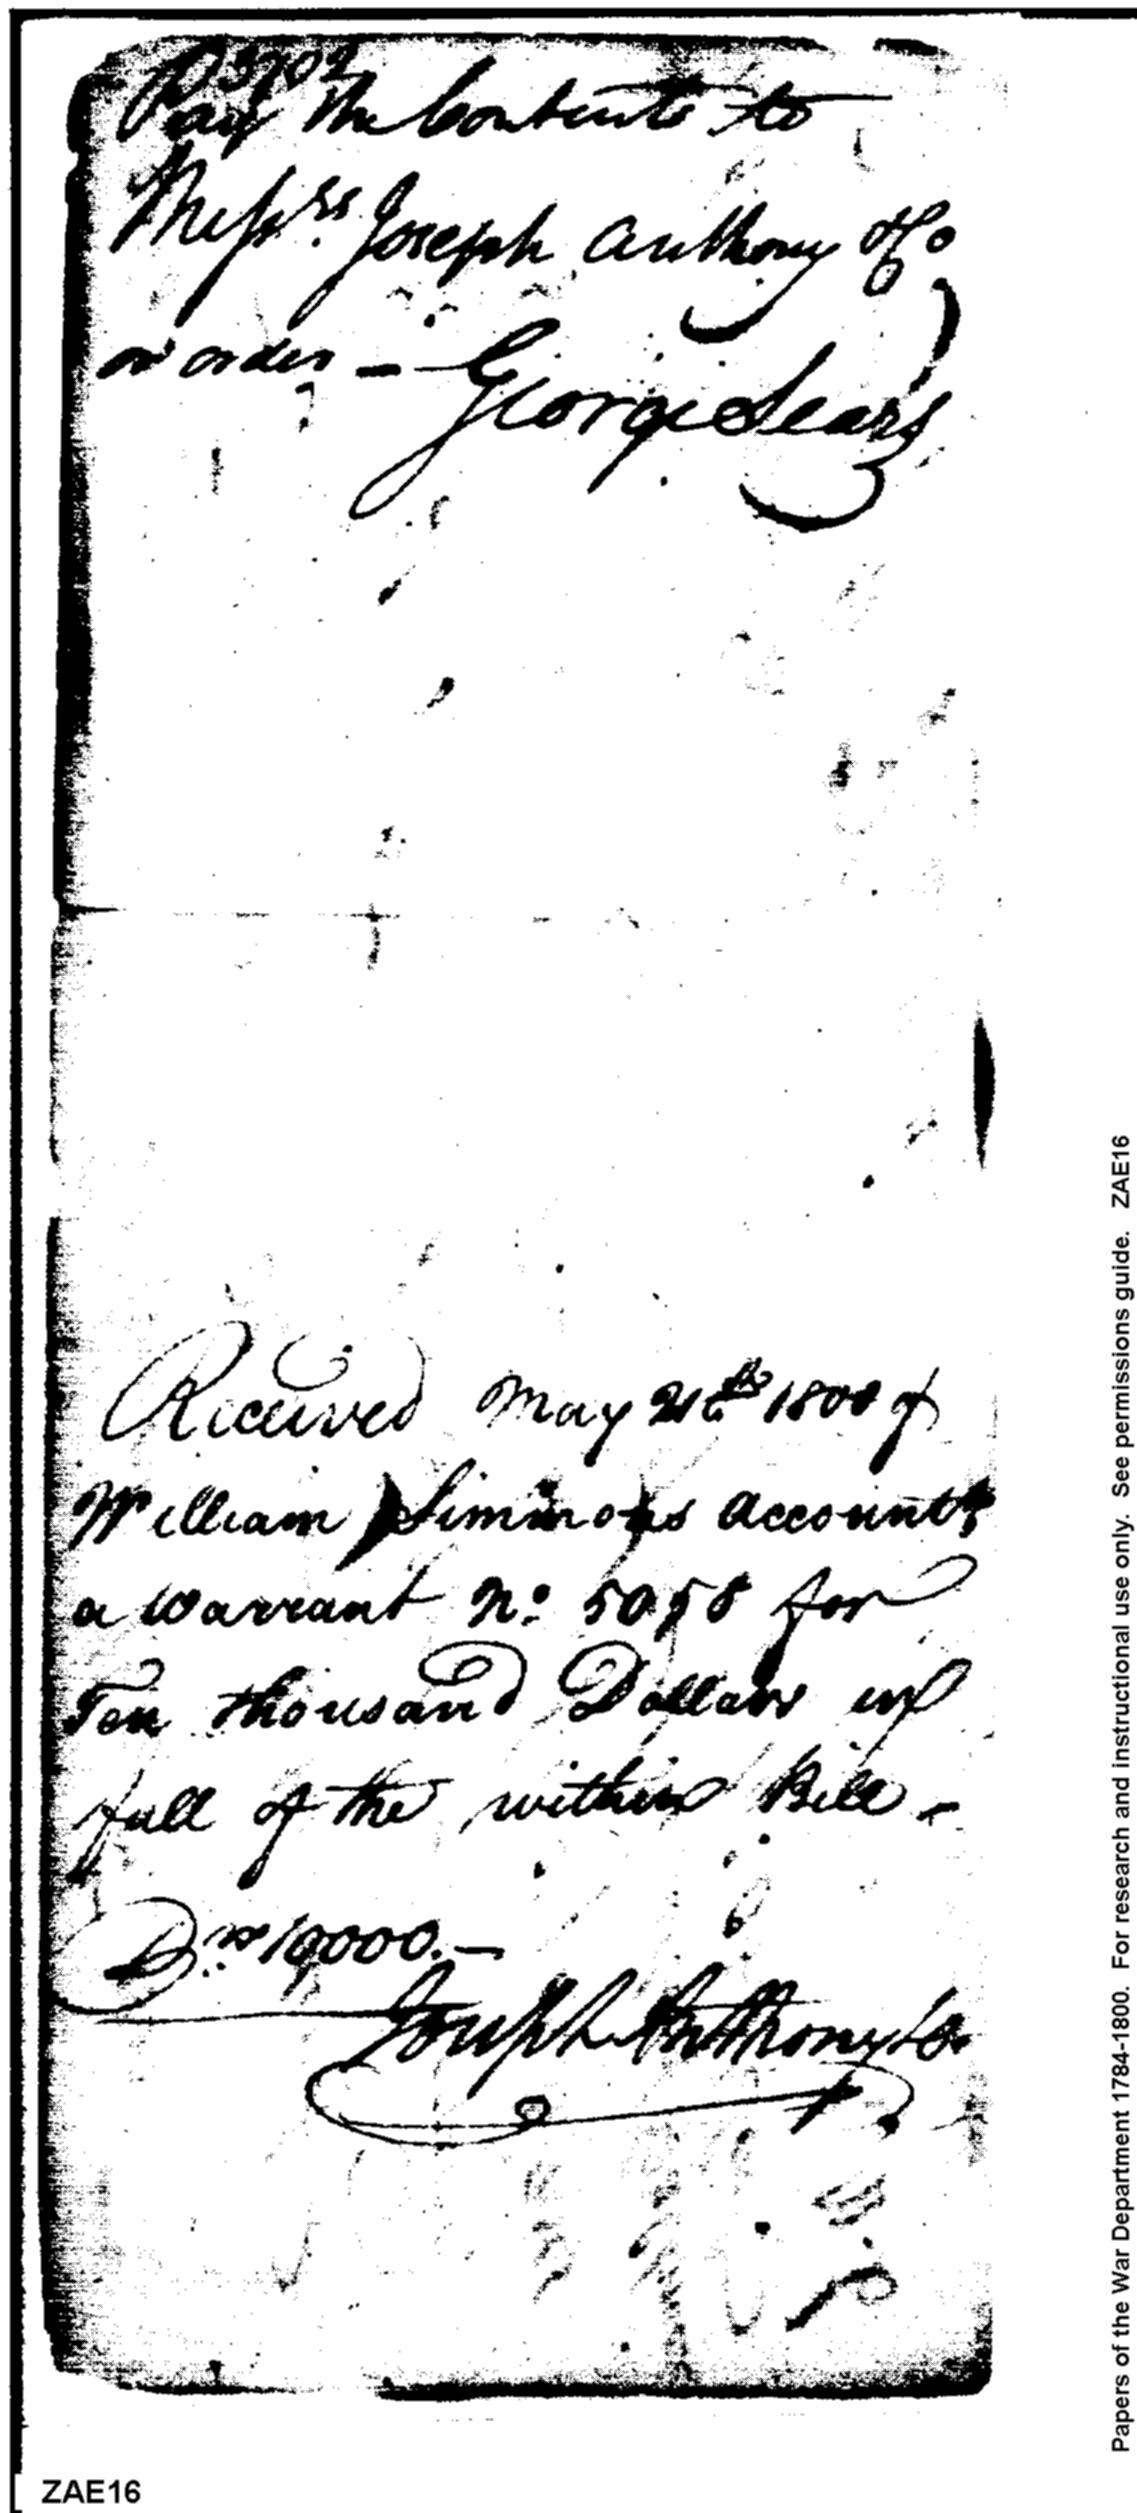 Pay the Contents to
Messrs. Joseph Anthony & Co
or order - George Sears
Received May 1800 of
William Simmons accountt
a warrant No: 5058 for
Ten thousand Dollars in
full of the within Bill -
Drs 10,000.-
Joseph Anthony & Co
ZAE16
Papers of the War Department 1784-1800. For research and instructional use only. See permissions guide. ZAE16